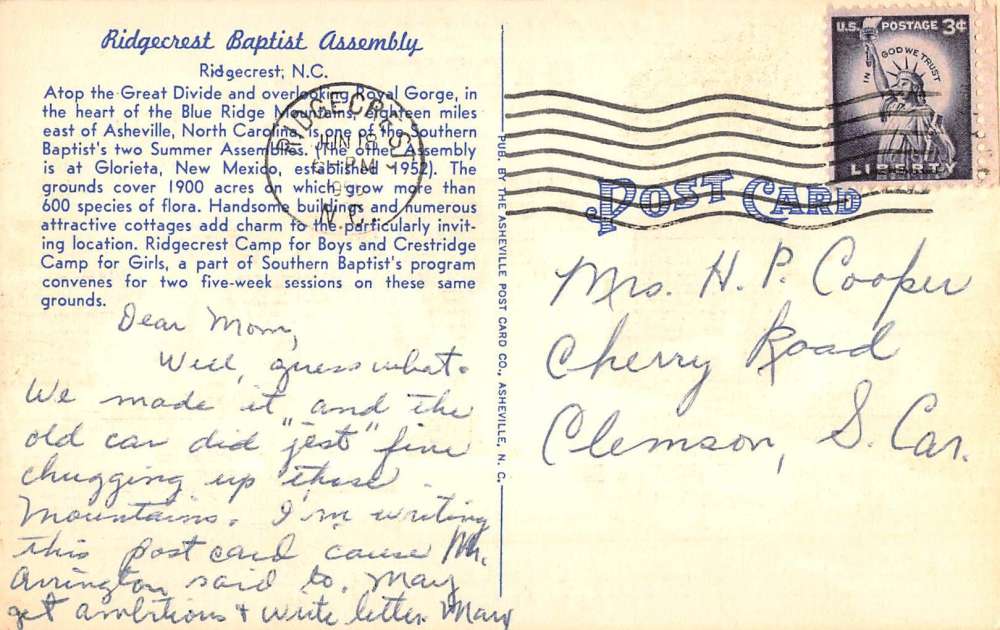 Ridgecrest Baptist Assembly
Ridgecrest, N.C.
Atop the Great Divide and overlooking Royal Gorge, in
the heart of the Blue Ridge Mountains, eighteen miles
east of Asheville, North Carolina, is one of the Southern
Baptist's two Summer Assemblies. (The other Assembly
is at Glorieta, New Mexico, established 1952). The
grounds cover 1900 acres on which grow more than
600 species of flora. Handsome buildings and numerous
attractive cottages add charm to the particularly invit-
ing location. Ridgecrest Camp for Boys and Crestridge
Camp for Girls, a part of Southern Baptist's program
convenes for two five-week sessions on these same
grounds.
Dear Mom,
Well, guess what.
We made it, and the
old car did "jest" fine
chugging up those
Mountains. I'm writing
this post card cause Mr.
Arrington said to. May
get ambitious + write letter. Mary
PUB. BY THE ASHEVILLE POST CARD CO., ASHEVILLE, N. C.
RIDGECREST
JUN 18
PM
N.C.
U.S. POSTAGE 3¢
IN GOD WE TRUST
LIBERTY
POST CARD
Mrs. H. P. Cooper
Cherry Road
Clemson, S. Car.